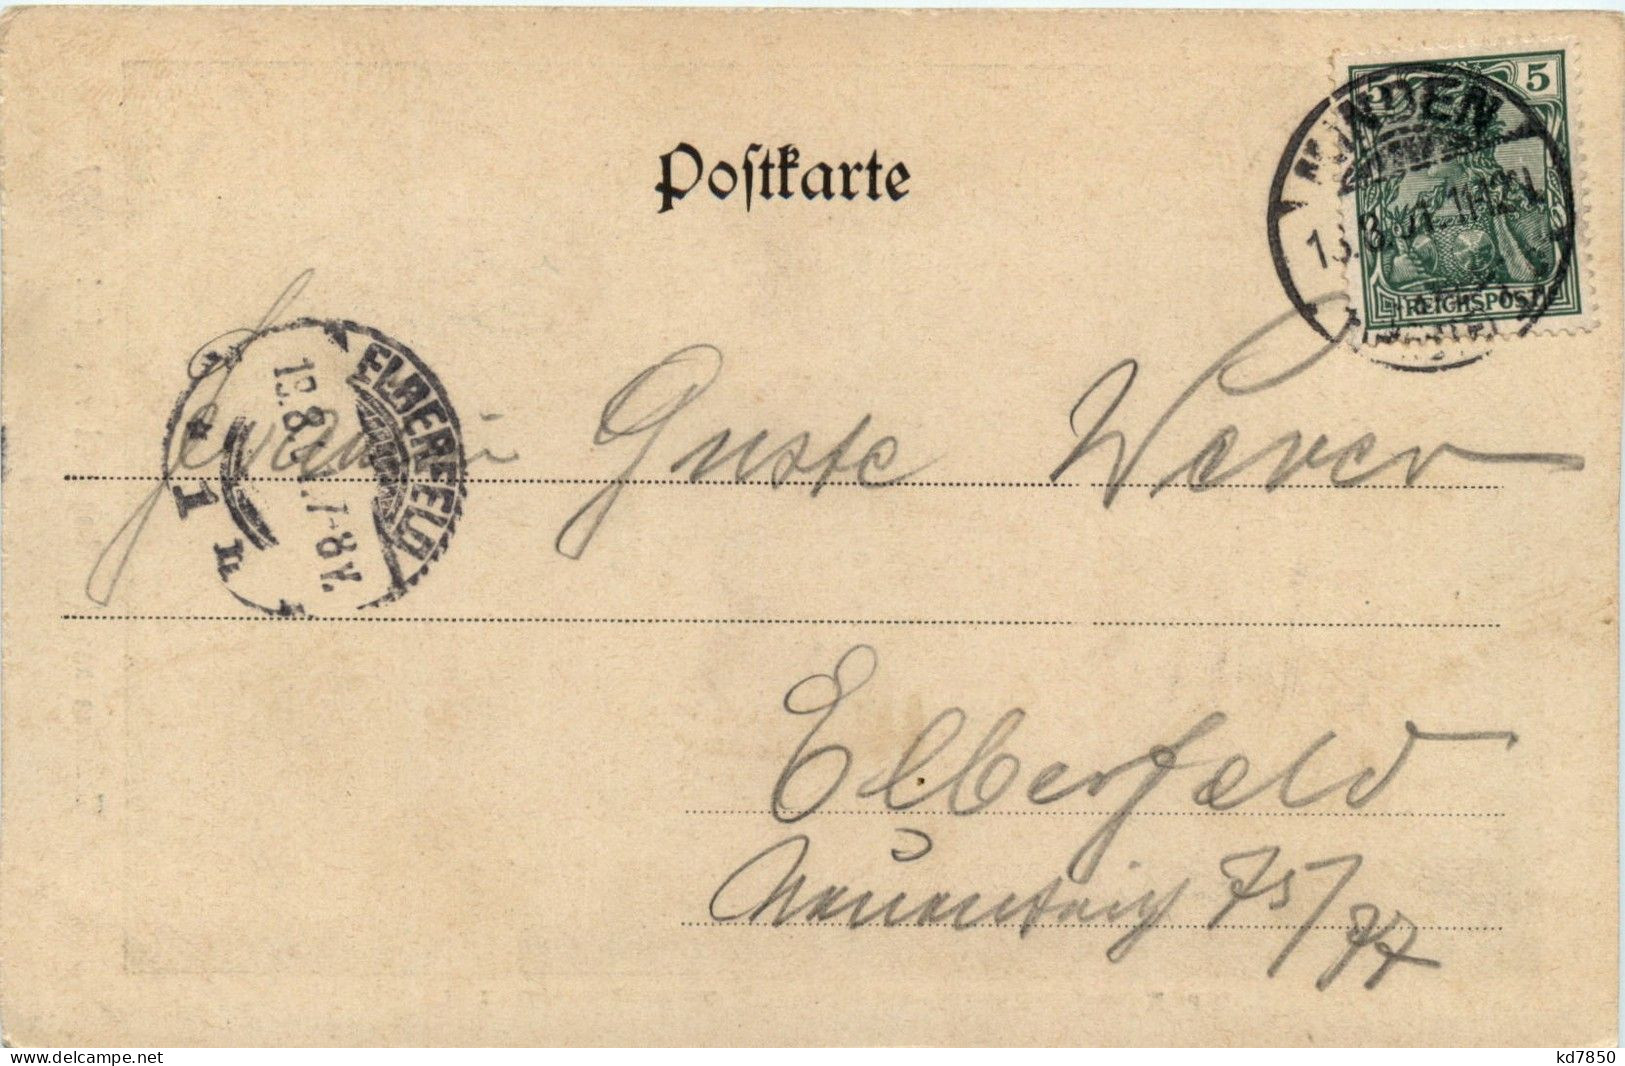 Postkarte
5 5
REICHSPOST
MINDEN
13.8.01.11-12V.
ELBERFELD
13.8.01.7-8V.
* 1 n
Fräulein Guste Wever
Elberfeld
Neuenteich 75/77
delcampe.net
kd7850